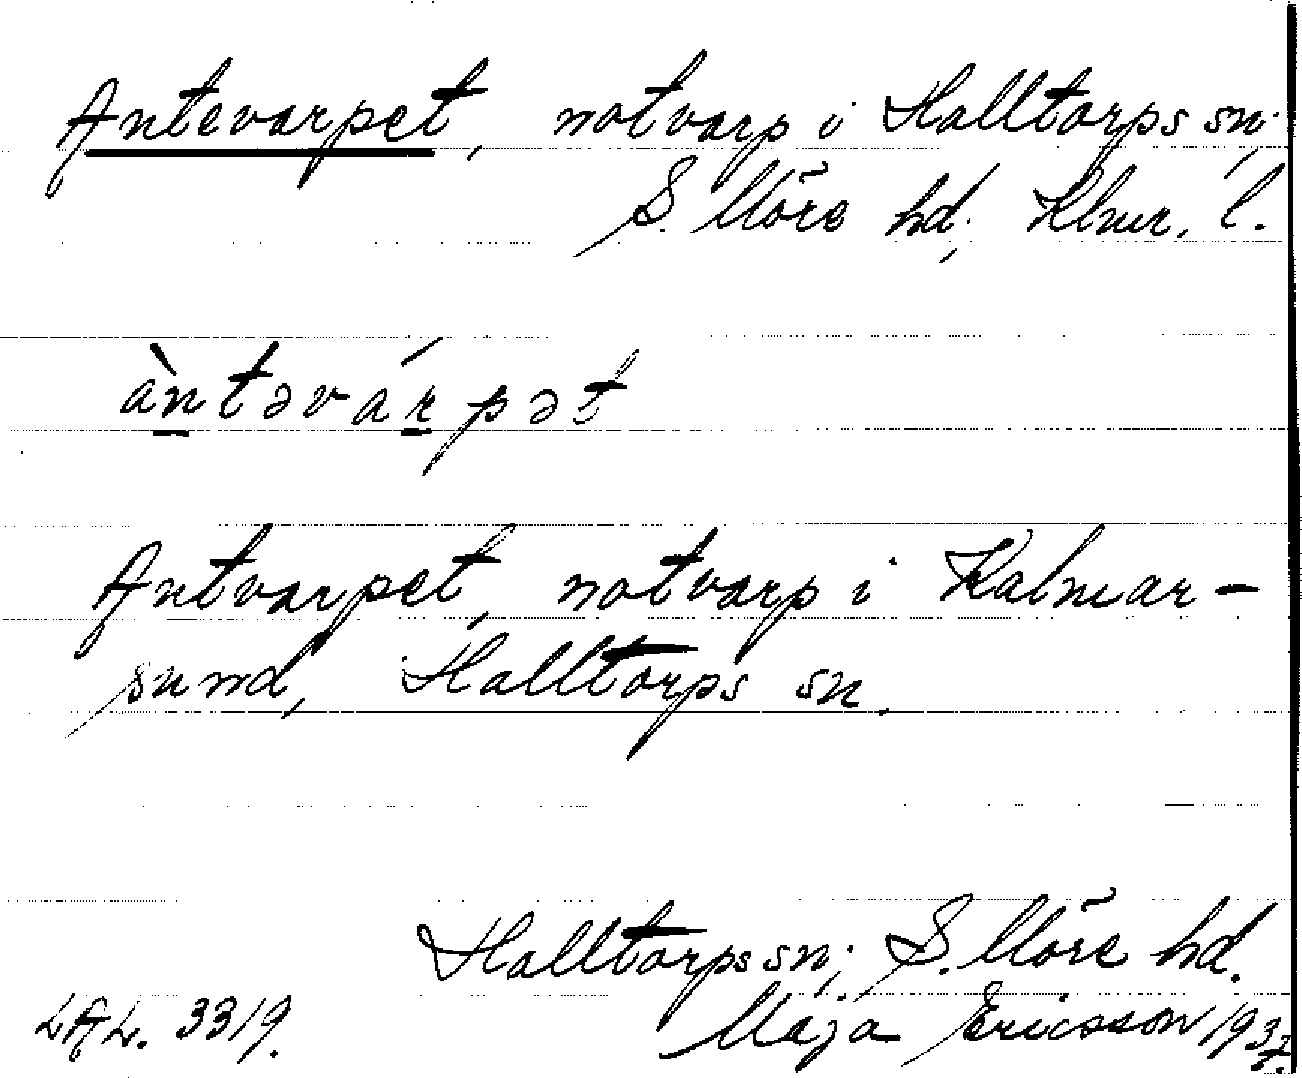 Antevarpet, notvarp i Halltorps sn,
S. Möre hd, Klmr. l.
àntəvárpət
Antvarpet, notvarp i Kalmar-
sund, Halltorps sn.
Halltorps sn; S. Möre hd.
LAL. 3319. Maja Ericsson 1937.